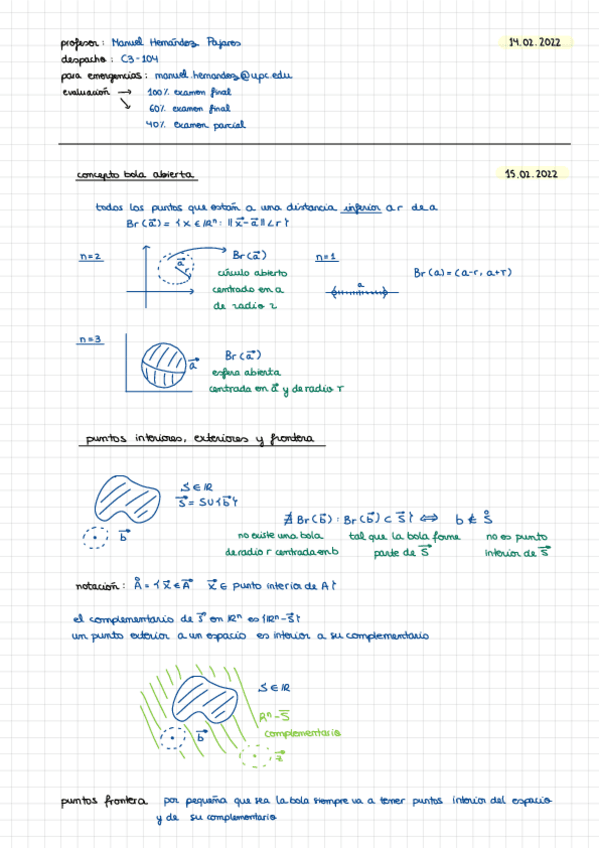 profesor: Manuel Hernández Pajares
14.02.2022
despacho: C3-104
para emergencias: manuel.hernandez@upc.edu
evaluación → 100% examen final
↘ 60% examen final
40% examen parcial
concepto bola abierta
15.02.2022
todos los puntos que están a una distancia inferior a r de a
Br(a⃗) = {x ∈ ℝⁿ: ‖x⃗-a⃗‖<r}
n=2
a⃗
r
Br(a⃗)
círculo abierto
centrado en a
de radio r
n=1
a
Br(a)=(a-r, a+r)
n=3
a⃗
Br(a⃗)
esfera abierta
centrada en a⃗ y de radio r
puntos interiores, exteriores y frontera
S∈ℝ
S⃗ = S∪{b⃗}
b⃗
∄ Br(b⃗): Br(b⃗) ⊂ S⃗} ⟺ b ∉ S̊
no existe una bola tal que la bola forme no es punto
de radio r centrada en b parte de S⃗ interior de S⃗
notación: Å = {x⃗ ∈ A⃗ x⃗ ∈ punto interior de A}
el complementario de S⃗ en ℝⁿ es {ℝⁿ-S⃗}
un punto exterior a un espacio es interior a su complementario
S∈ℝ
ℝⁿ-S⃗
complementario
b⃗
puntos frontera por pequeña que sea la bola siempre va a tener puntos interior del espacio
y de su complementario